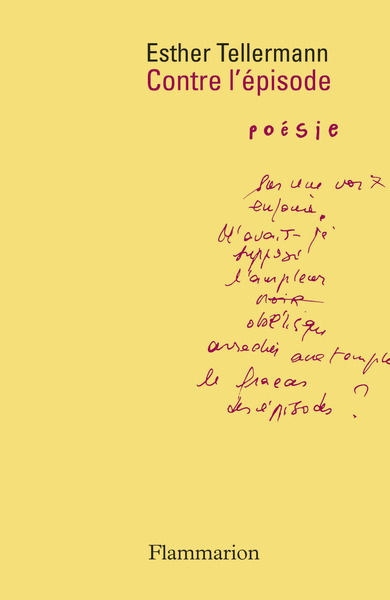 Esther Tellermann
Contre l'épisode
poésie
Sur une voix
enfouie.
N'avait-je
supposé
l'ampleur
noir
obélisque
arrachée aux temple
le fracas
des épisodes ?
Flammarion